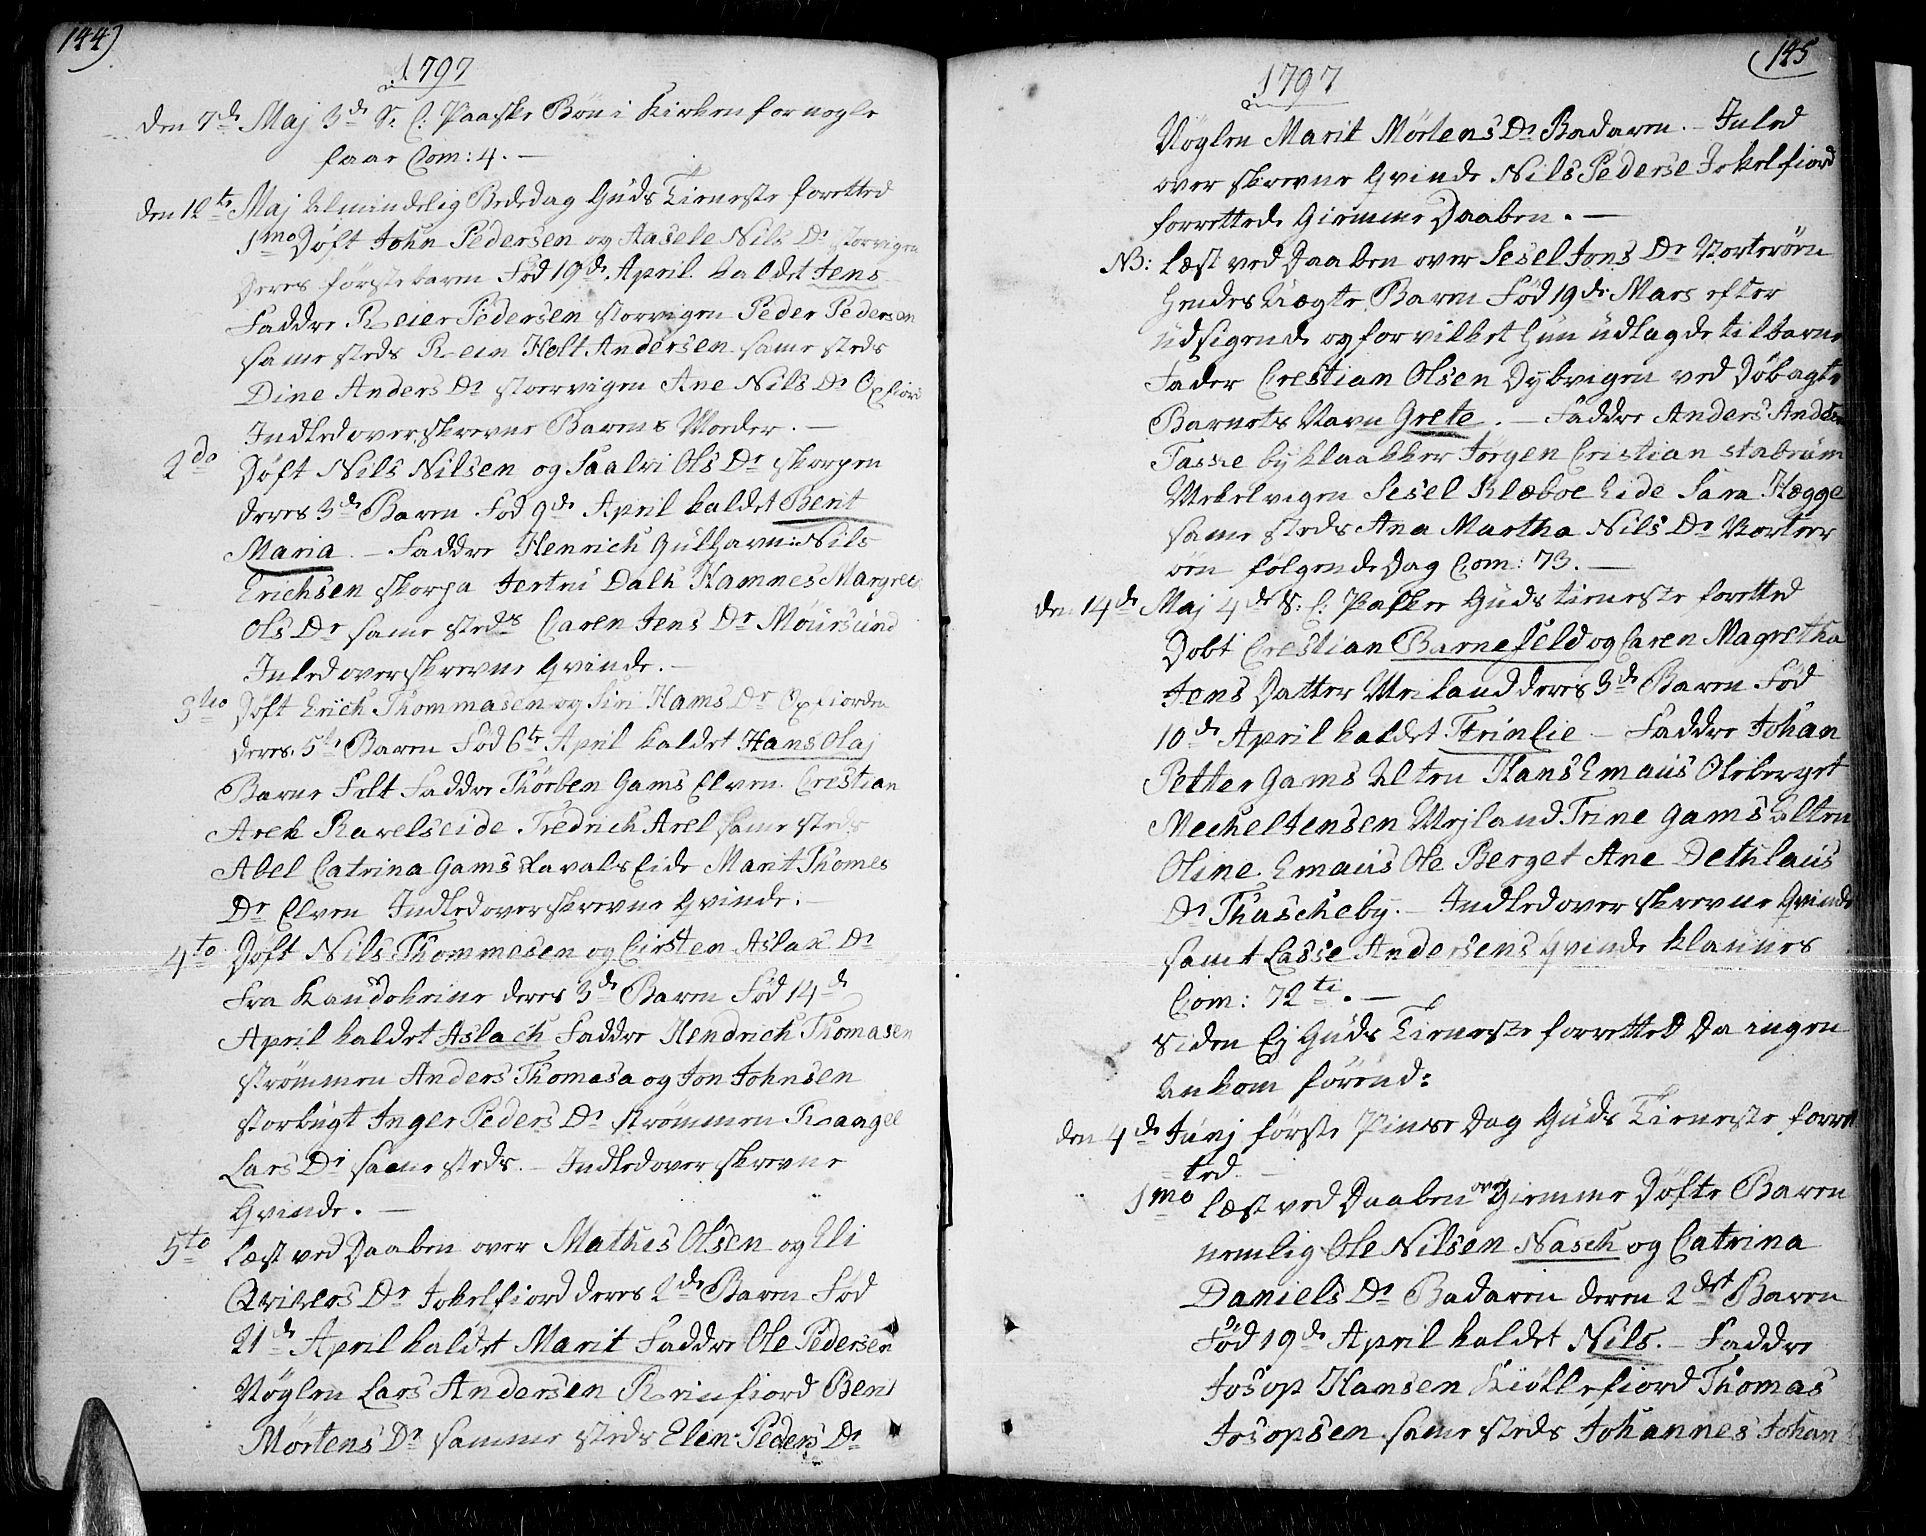 144)
1797
den 7de Maj 3de S: C: Paaske Bön i Kirken for nogle
faar Com: 4. —
den 12te Maj Almindelig Bededag Guds Tieneste foretted
1mo Döft John Pedersen og Aasele Nils Dr Storvigen
Deres förste barn Föd 19de April kaldet Jens
Faddre Reier Pedersen storvigen Peder Pedersen
same steds Rein Holt Andersen same steds
Dine Anders Dr storrvigen Ane Nils Dr Oxfiord
Indled over skrevne Barens Moeder. —
2do Döft Nils Nilsen og Saalvi Ols Dr skorpen
deres 3de Baren Föd 9de April kaldet Berit
Maria. — Faddre Henrich Gulhavn: Nils
Erichsen skorpa Jertru Dalk Hamnes Margret
Ols Dr same steds Caren Jens Dr Möursund
Inled over skrevne Qvinde. —
3tio Döft Erich Thommasen og Siri Hams Dr Oxfiorden
deres 5te Baren Föd 6te April kaldet Hans Olaj
Barne Felt Faddre Thörben Gams Elven Crestian
Arek Ravelseide Fredrich Arel same steds
Abel Catrina Gams Ravals Eide Marit Thomes
Dr Elven Indled over skrevne Qvinde. —
4to Döft Nils Thommesen og Cirsten Aslak Dr
Fra Kaudokeine deres 3de Baren Föd 14de
April kaldet Aslach Faddre Hendrich Thomasen
strömmen Anders Thomasa og Jon Johnsen
storbugt Inger Peders Dr strömmen Raangel
Lars Dr same steds. — Indled over skrevne
Qvinde. —
5to Læst ved Daaben over Mathis Olsen og Eli
Dr Jokelfiord deres 2de Baren Föd
21de April kaldet Marit Faddre Ole Pedersen
Nöglen Lars Andersen Reinfiord Berit
Mörtens Dr samme steds Elen Peders Dr
(145
1797
Nöglen Marit Mörtens Dr Badaren. — Inled
over skrevne Qvinde Nils Pederse Jokelfiord
forrettede Giemme Daaben. —
NB: Læst ved Daaben over Sesel Jons Dr Vorterörn
Hendes Uægte Baren Föd 19de Mars efter
udsigende og for vilket hun udlagde til barne
Fader Crestian Olsen Dybvigen ved Döbagte
Barnets Navn Grete. — Faddre Anders Anders
Tasse by klaakker Jörgen Cristian stabrum
Mekelvigen Sesel Klæboe Eide Sara Hægge
same steds Ana Martha Nils Dr Vorter
örn fölgende Dag Com: 73. —
den 14de Maj 4de S: C: Paske Guds tieneste foretted
Döbt Crestian Barnefeld og Caren Magretha
Jens Datter Meiland deres 3de Baren Föd
10de April kaldet Trinlie — Faddre Johan
Petter Gams Alten Hans Emaus Oleberget
Mechel Jensen Mejland Trine Gams Alten
Oline Emaus Ole Berget Ane Dethlaus
Dr Thascheby. — Indled over skrevne Qvinde
samt Lasse Andersens Qvinde klaunes
Com: 72ti. —
siden Ej Guds Tieneste forretted Da ingen
Ankom förend:
den 4de Junj förste Pinse Dag Guds Tieneste forret
ted. —
1mo Læst ved Daaben over Giemme Döfte Baren
nemlig Ole Nilsen Nasck og Catrina
Daniels Dr Badaren deren 2det Baren
Föd 19de April kaldet Nils. — Faddre
Josop Hansen Kiöllefiord Thomas
Josopsen same steds Johannes Johan